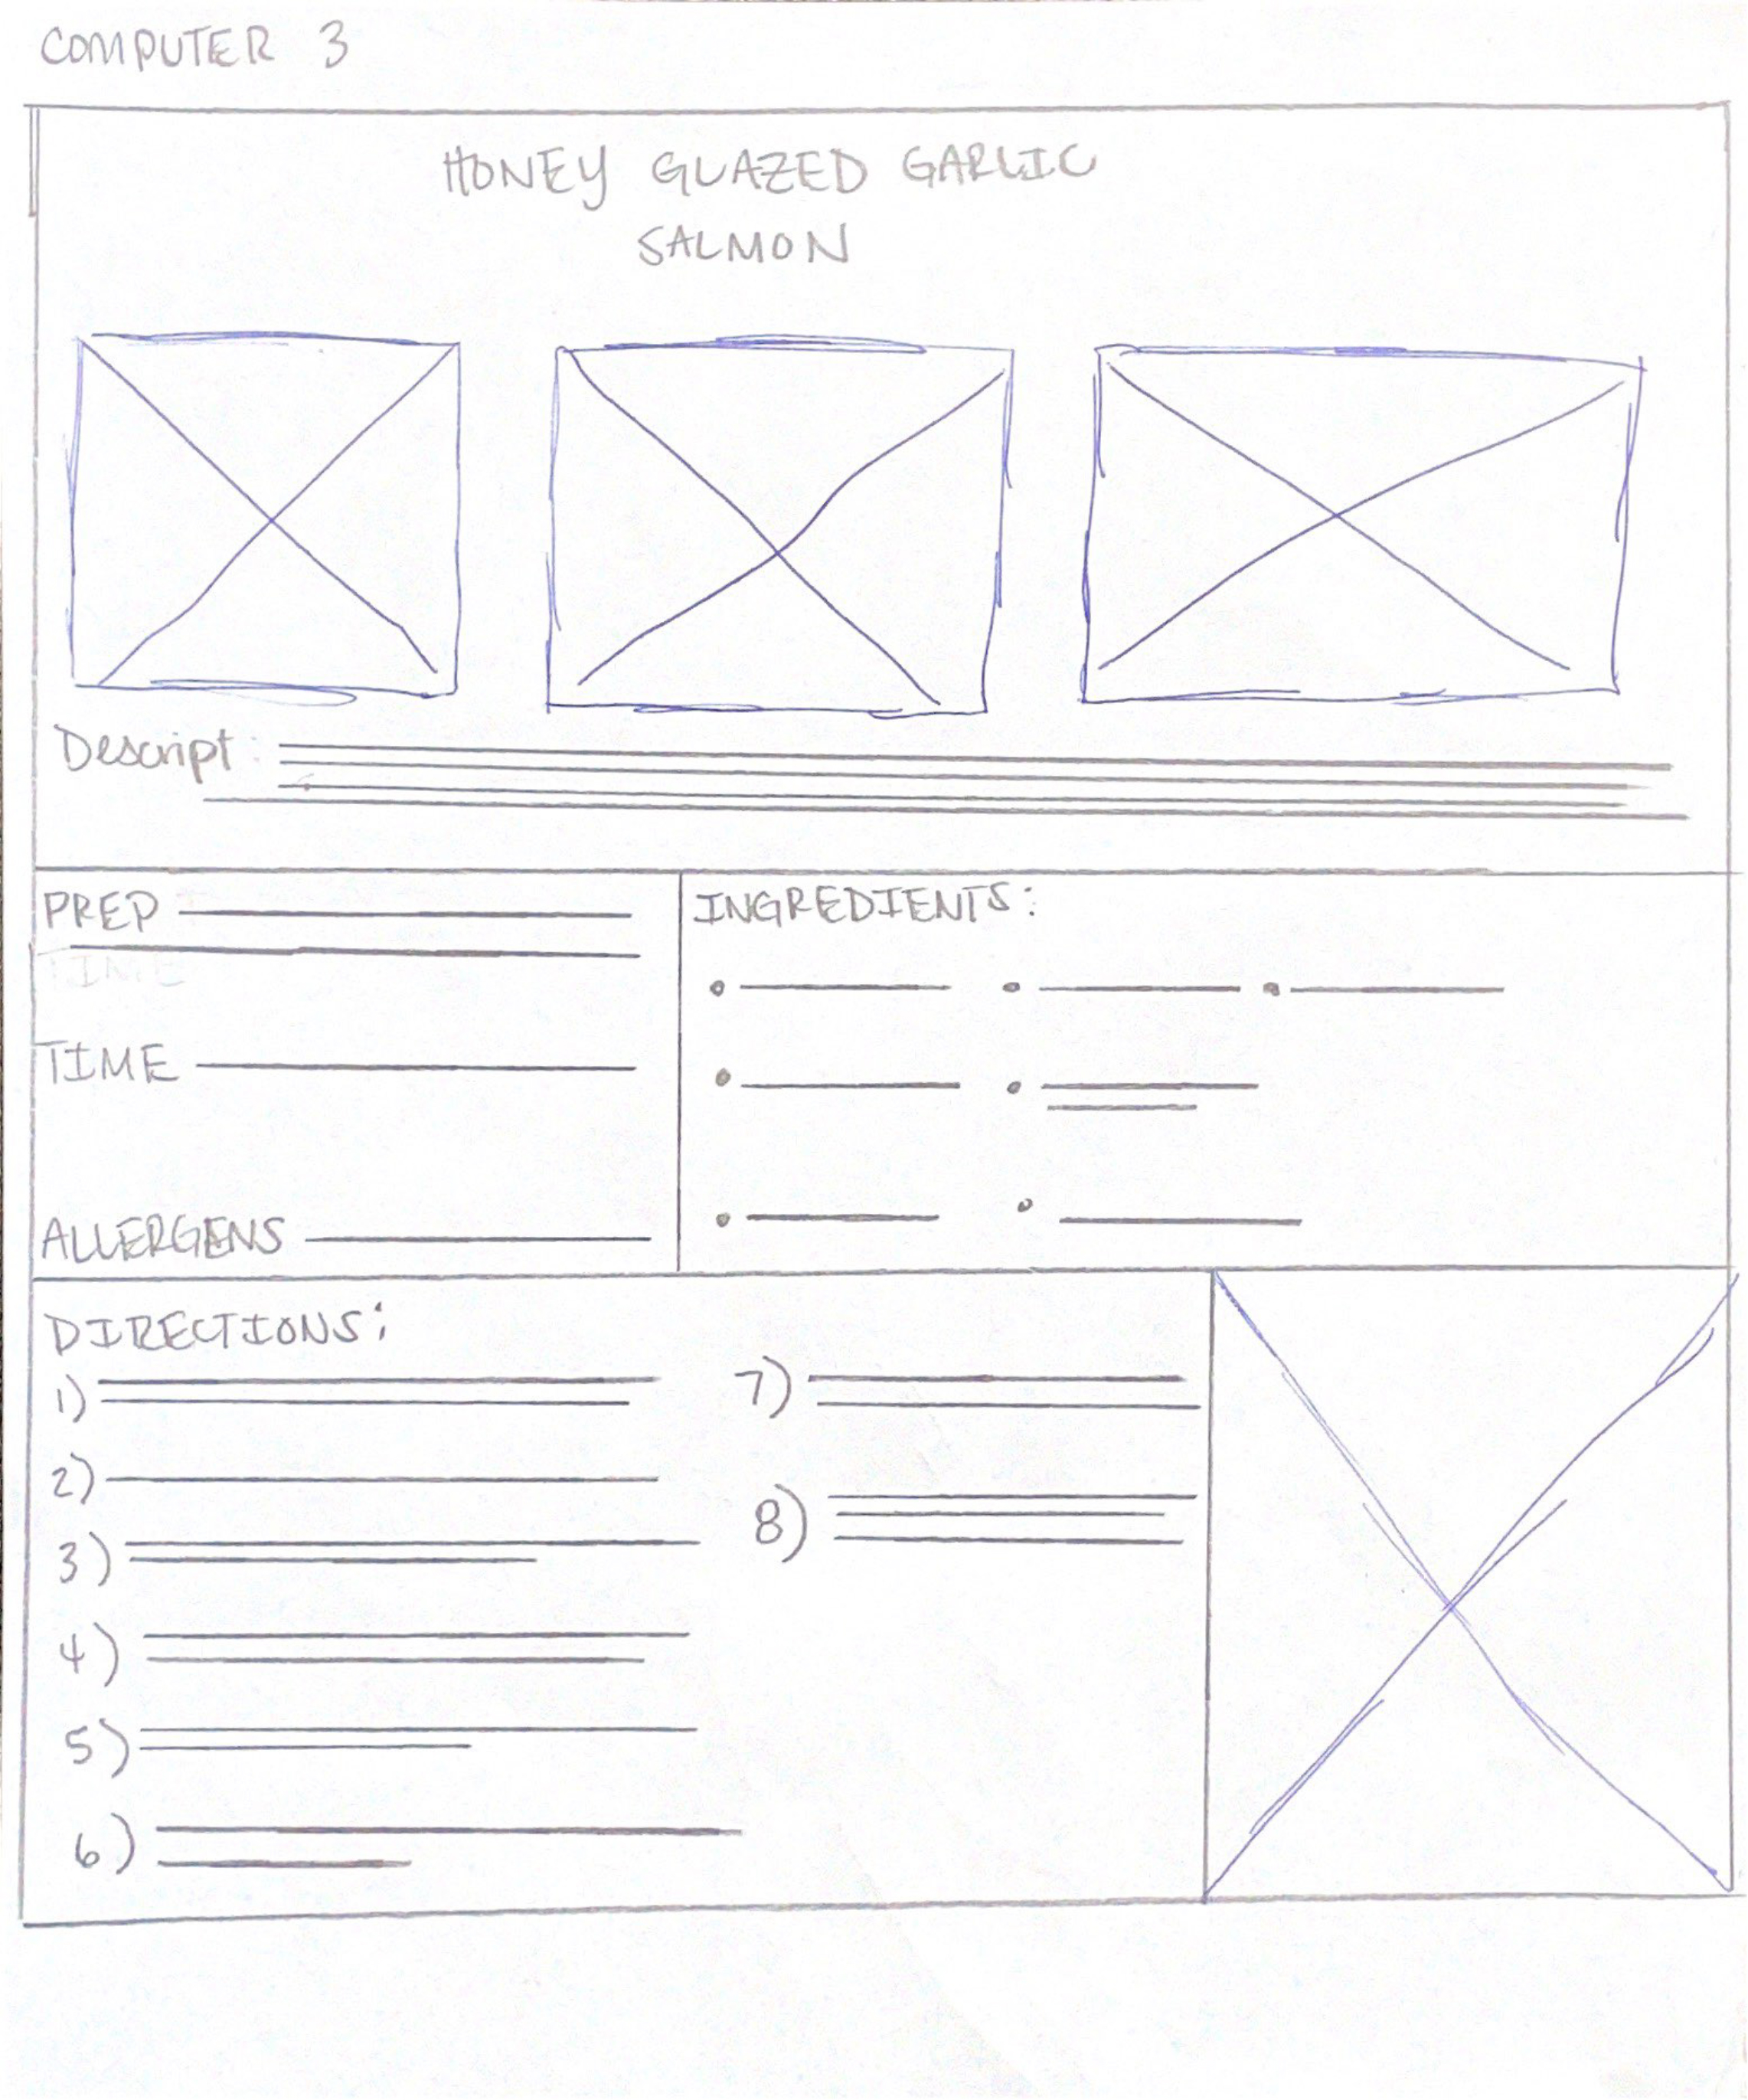 COMPUTER 3
HONEY GLAZED GARLIC
SALMON
Descript:
PREP
TIME
TIME
ALLERGENS
INGREDIENTS:
DIRECTIONS:
1)
2)
3)
4)
5)
6)
7)
8)